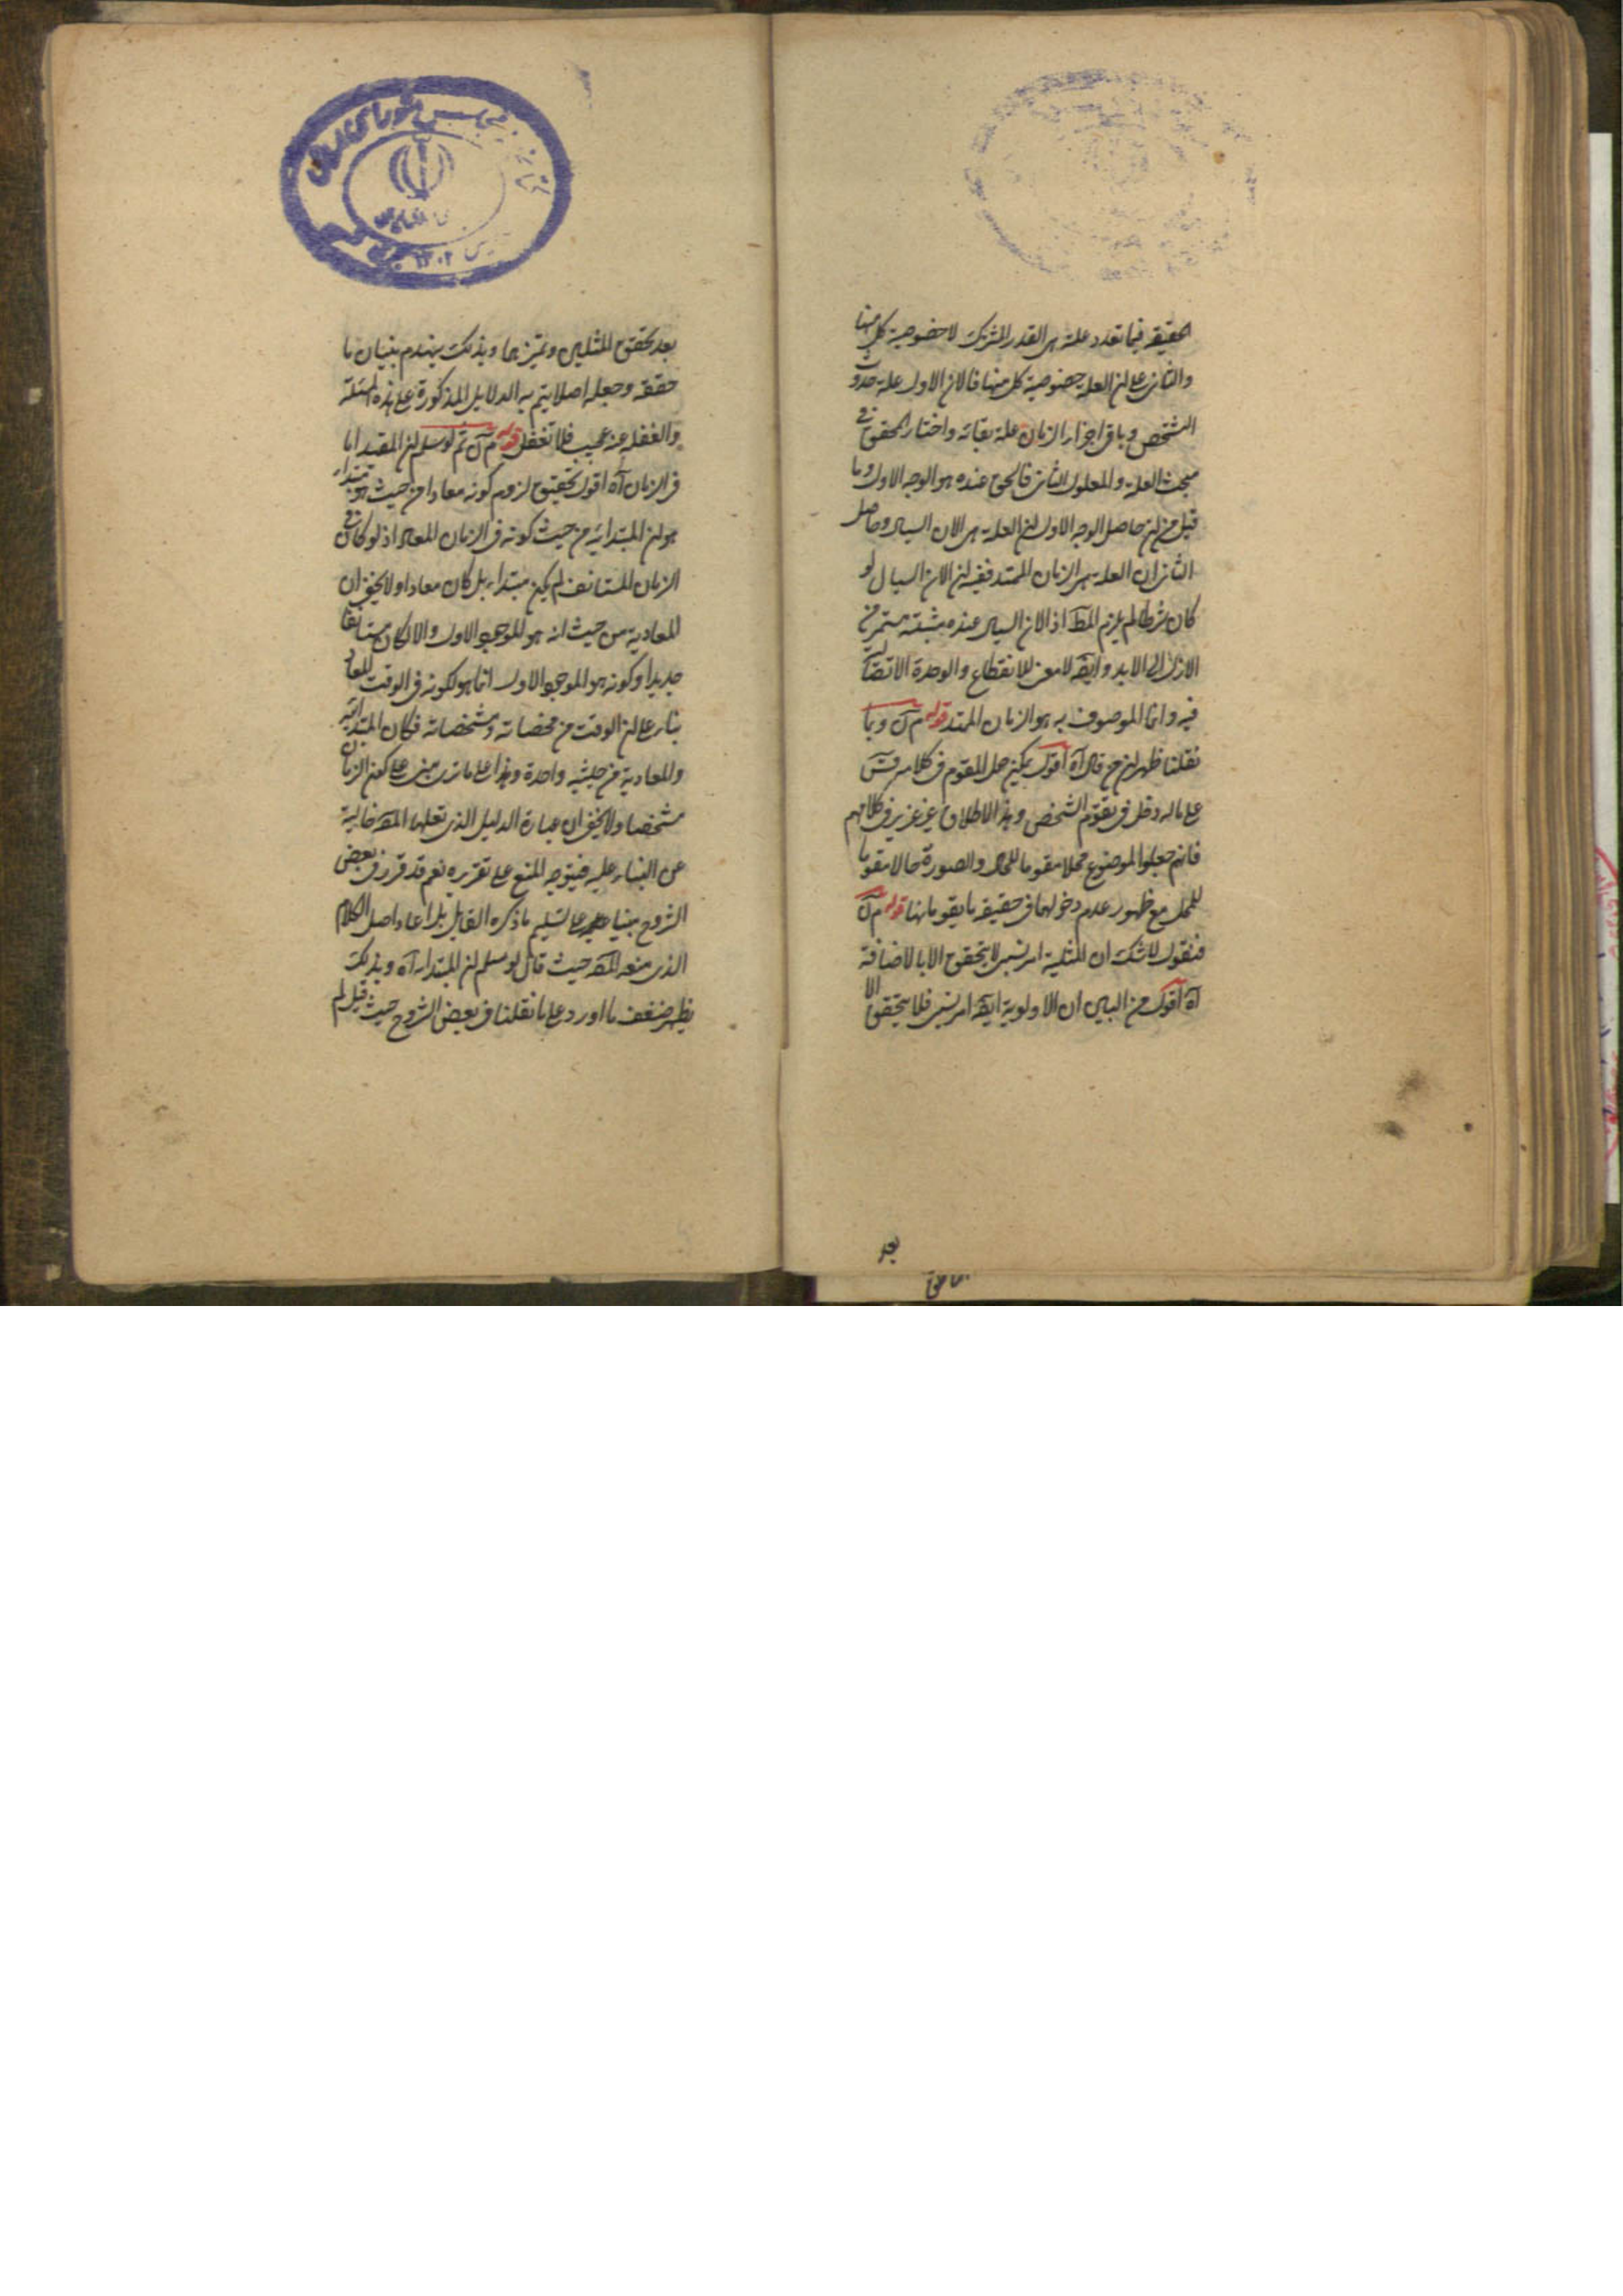 الحقيقة فيما تعدد علته هى القدر المشترك لا خصوصية كل منها
والثانى على ان العلة خصوصية كل منها فالان الاول علة حدوث
الشخص وباقى اجزاء الزمان علة بقائه واختار المحقق فى
مبحث العلة والمعلول الثانى فالحق عنده هو الوجه الاول وما
قيل من ان حاصل الوجه الاول ان العلة هى الان السيال وحاصل
الثانى ان العلة هى الزمان الممتد ففيه ان الان السيال لو
كان شرطا لم يلزم المط اذ الان السيال عند مثبته مستمر من
الازل الى الابد وايضا لا معنى للانقطاع والوحدة الاتصالية
فيه وانما الموصوف به هو الزمان الممتد قوله م ل وبما
نقلنا ظهر ان من قال آه اقول يمكن حمل المقوم فى كلامه
على ماله دخل فى تقوم الشخص وهذا الاطلاق غير عزيز فى كلامهم
فانهم جعلوا الموضوع محلا مقوما للحال والصورة حالا مقوما
للمحل مع ظهور عدم دخولهما فى حقيقة ما يقومانها قوله م ل
فنقول لا شك ان المثلية امر نسبى لا يتحقق الا بالاضافة
آه اقول من البين ان الاولوية ايضا امر نسبى فلا يتحقق الا
بعد
بعد تحقق المثلين وتميزهما وبذلك ينهدم بنيان ما
حققه وجعله اصلا يتم به الدلايل المذكورة على هذه المسئلة
والغفلة عنه عجيب فلا تغفل قوله م ل ثم لو سلم ان المقيد انما
فى الزمان آه اقول تحقيق لزوم كونه معادا من حيث هو مبتداء
هو ان المبتدائية من حيث كونه فى الزمان المعاد اذ لو كان فى
الزمان المستانف لم يكن مبتداء بل كان معادا ولا يخفى ان
المعادية من حيث انه هو الموجود الاول والا لكان مستانفا
جديدا وكونه هو الموجود الاول انما هو لكونه فى الوقت المعاد
بناء على ان الوقت من مخصصاته ومشخصاته فكان المبتدائية
والمعادية من حيثية واحدة وهذا على ما ترى مبنى على كون الزمان
مشخصا ولا يخفى ان عبارة الدليل الذى نقلها المص خالية
عن البناء عليه فيتوجه المنع على تقريره نعم قد قرر فى بعض
الشروح مبنيا عليه على تسليم ما ذكره القايل بل اعاد اصل الكلام
الذى منعه المص حيث قال لو سلم ان المبتداء آه وبذلك
يظهر ضعف ما اورد على ما نقلنا فى بعض الشروح حيث قيل لم